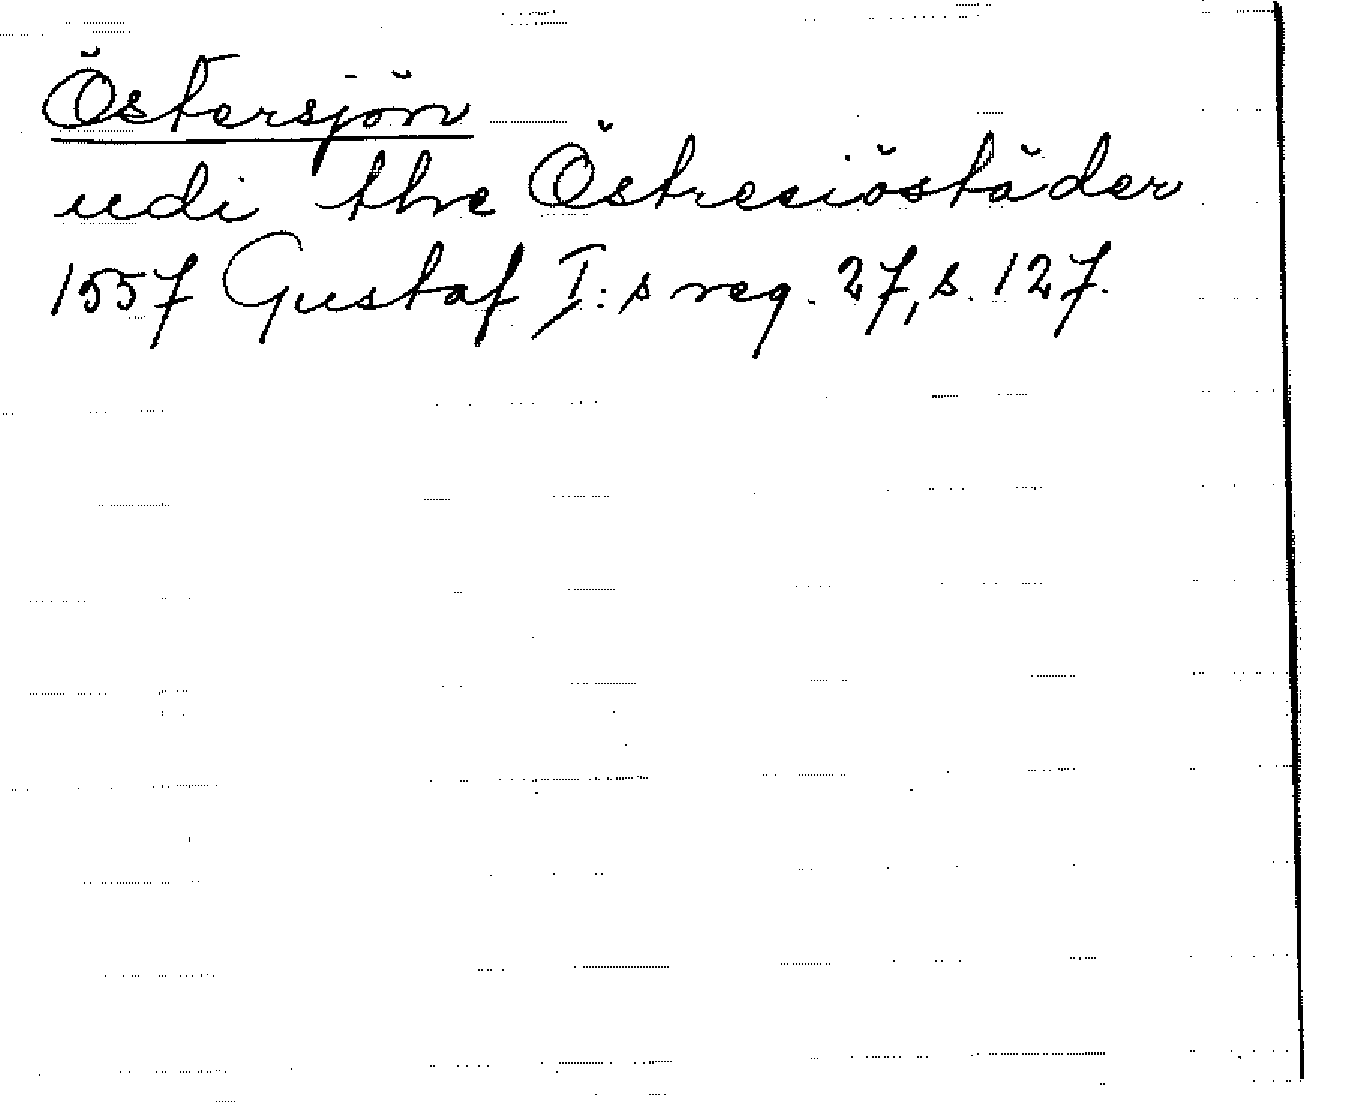 Östersjön
udi the Östresiöstäder
1557 Gustaf I:s reg. 27, s. 127.